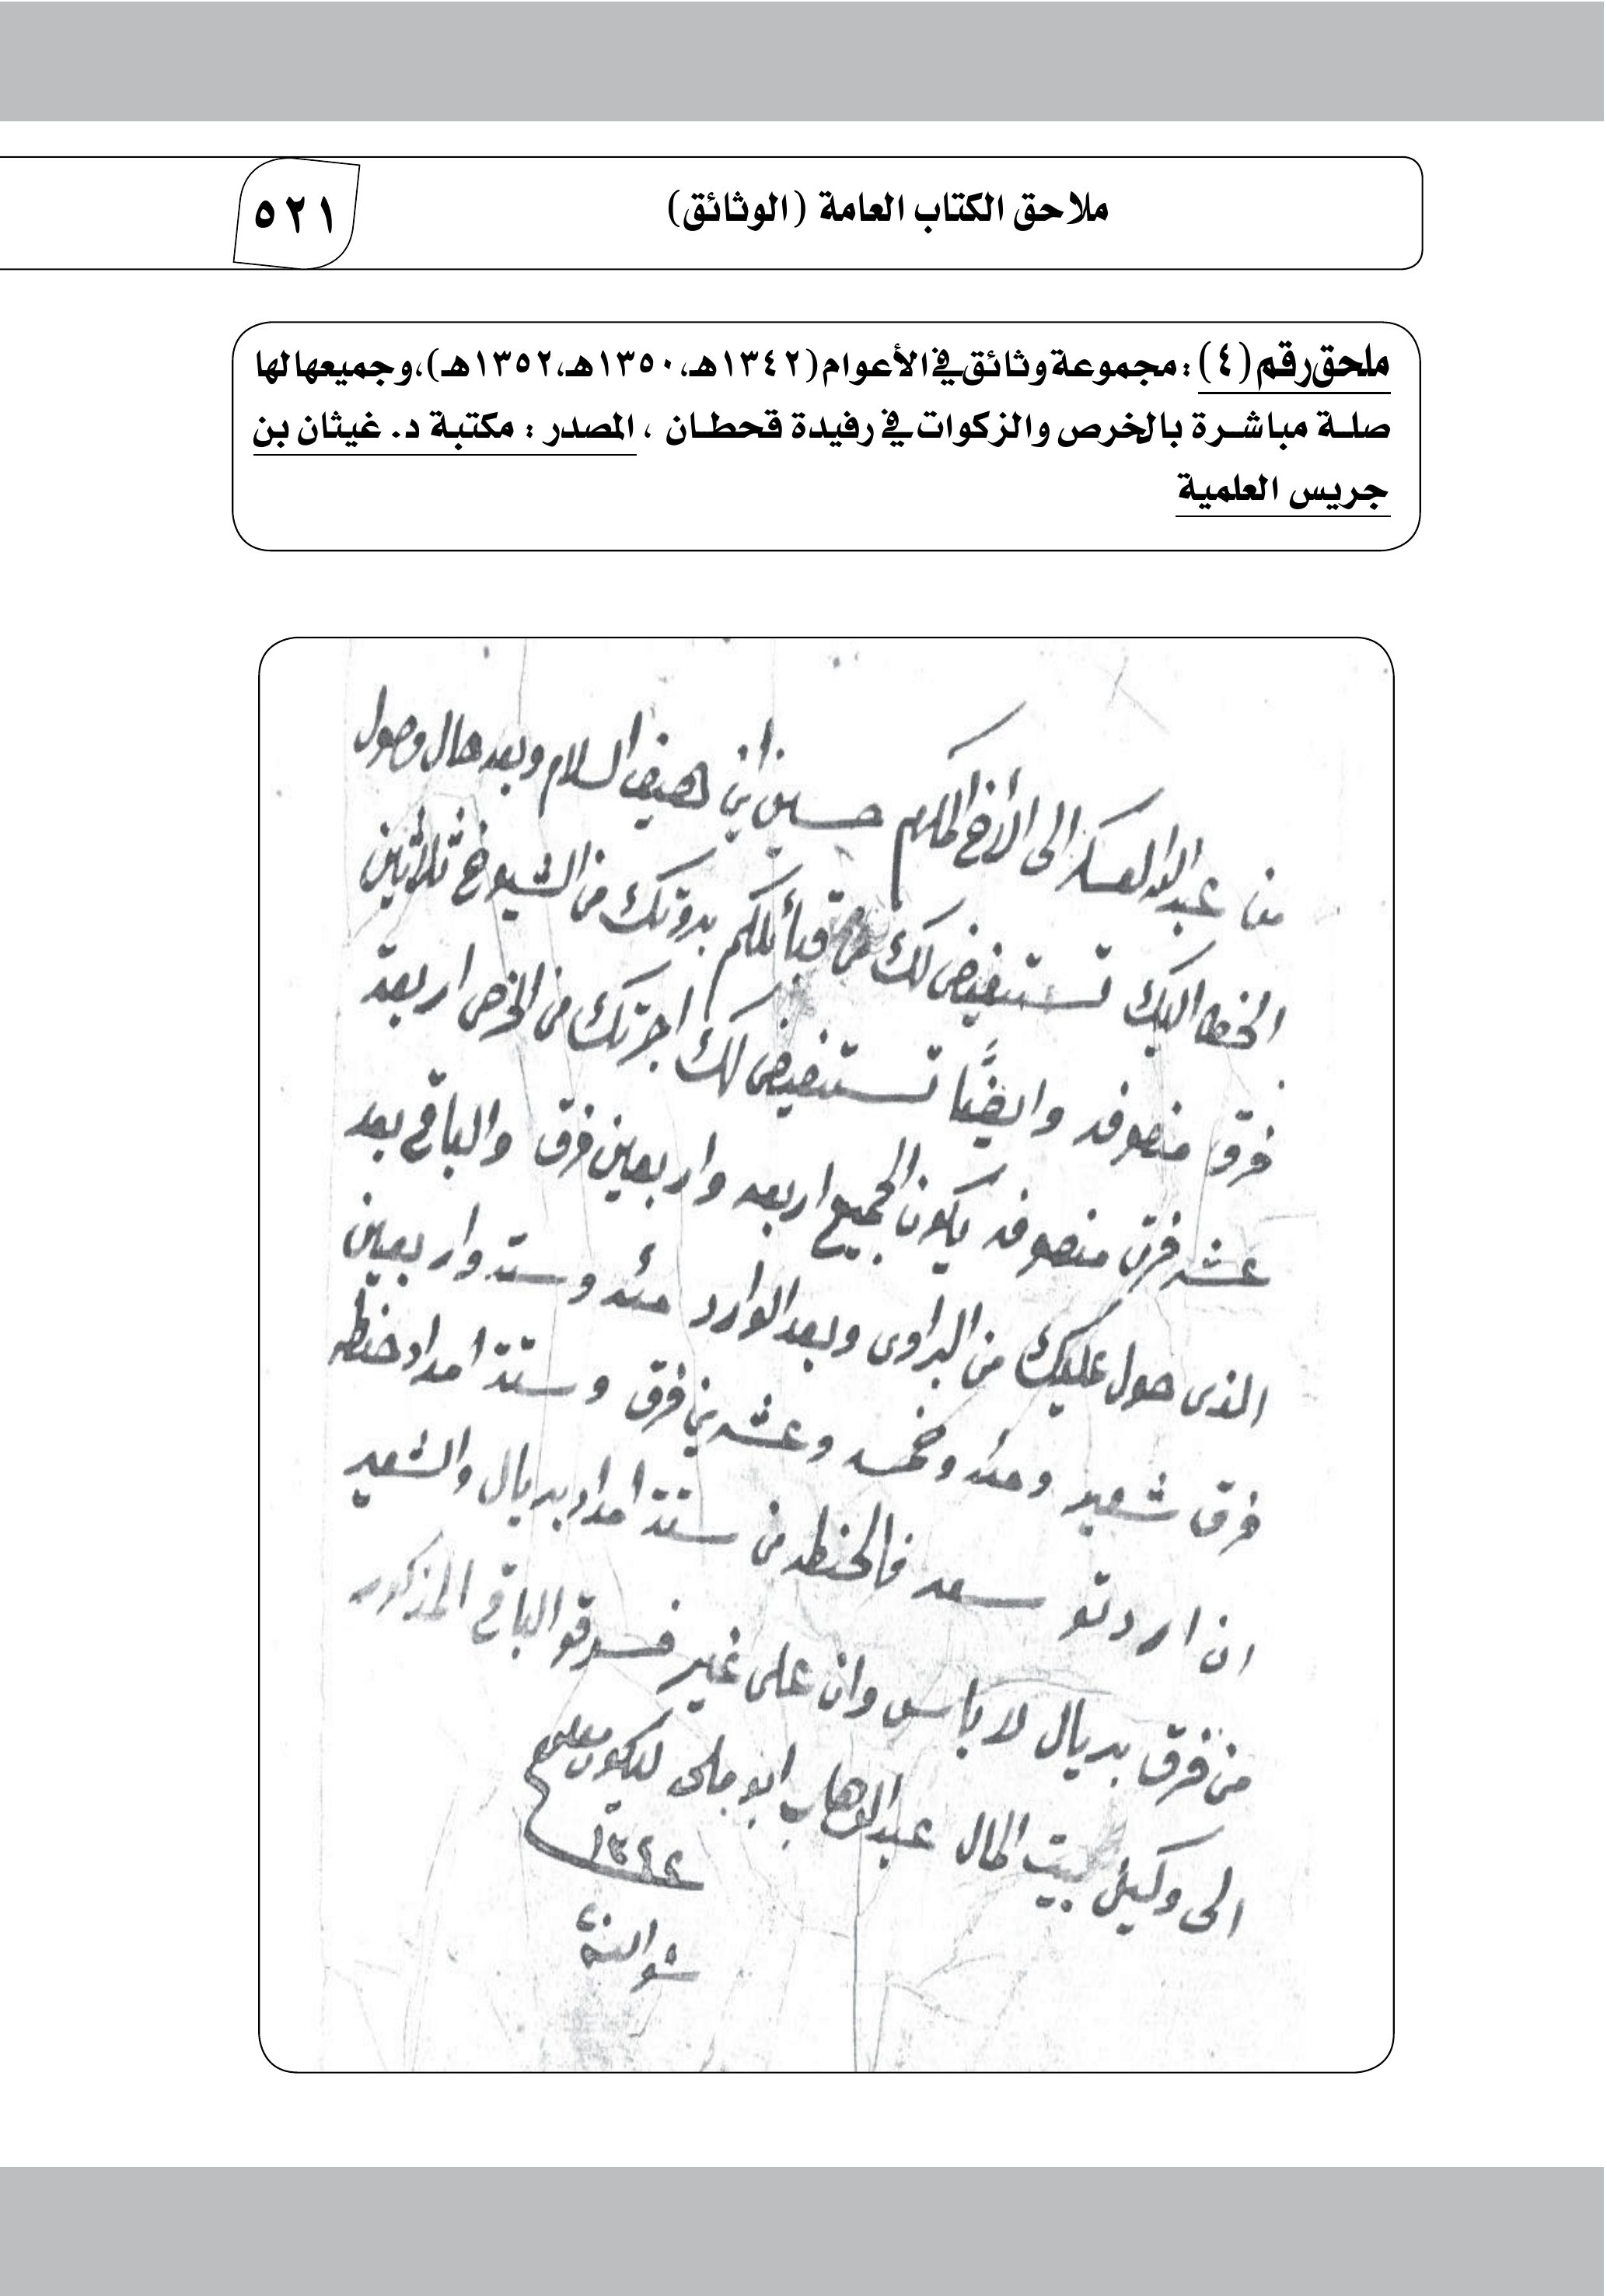 ملاحق الكتاب العامة (الوثائق)
٥٢١
ملحق رقم (٤) : مجموعة وثائق في الأعوام (١٣٤٢هـ، ١٣٥٠هـ، ١٣٥٢هـ)، وجميعها لها
صلة مباشرة بالخرص والزكوات في رفيدة قحطان ، المصدر : مكتبة د. غيثان بن
جريس العلمية
من عبدالله العسكر الى الأخ المكرم حسين ابن هيف السلام وبعد حال وصول
الخط اليك تستنفيض لك من قبائلكم بدوتك من الشيوخ ثلاثين
فرق منصوفه وايضًا تستنفيض لك اجرتك من الخرص اربعة
عشر فرق منصوفه يكون الجميع اربعه واربعين فرق والباقي بعد
الذى حول عليك من البراوى وبعد الوارد مئه وسته واربعين
فرق شعير ومئه وخمسه وعشرين فرق وستة امداد حنطه
ان اردتو سعه فالحنطه من ستة امداد بريال والشعير
من فرق بريال لا باس وان على غير فسرقو الباقي المذكور
الى وكيل بيت المال عبدالوهاب ابو ملحه ليكون معلوم
١٣٤٢